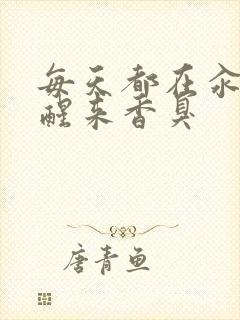 每天都在汆
醒来香臭
唐青鱼